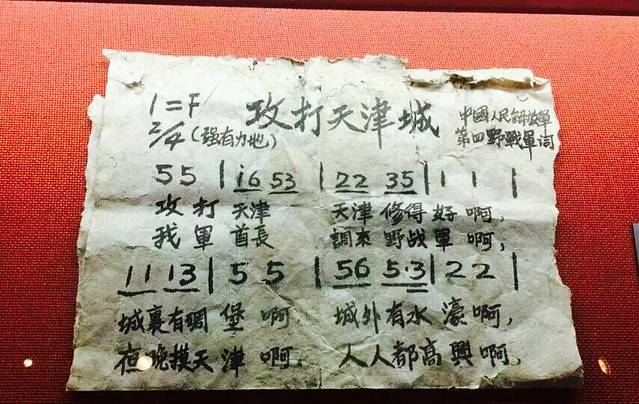 1=F
2/4
(强有力地)
攻打天津城
中國人民解放軍
第四野戰軍词
5 5 | i6 53 | 22 35 | 1 1 |
攻打 天津 天津 修得 好 啊,
我軍 首長 調來 野战 軍 啊,
11 13 | 5 5 | 56 5·3 | 2 2 |
城裏有碉 堡 啊 城外有水 濠 啊,
夜晚摸天 津 啊. 人人都高 興 啊,